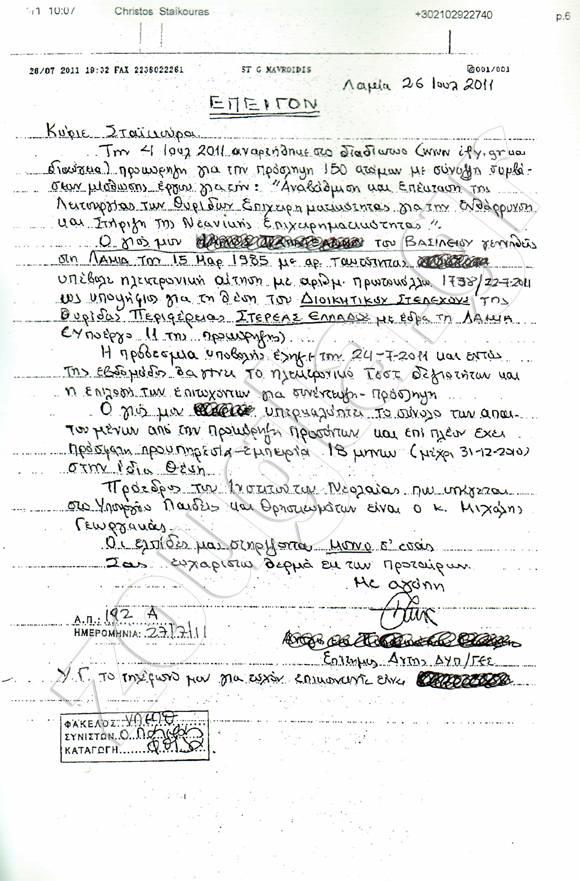 11 10:07 Christos Staikouras +302102922740 p.6
26/07 2011 19:32 FAX 2236022261 ST G MAVROIDIS 001/001
Λαμία 26 Ιουλ 2011
ΕΠΕΙΓΟΝ
Κύριε Σταϊκούρα.
Την 4 Ιουλ 2011 αναρτήθηκε στο διαδίκτυο (www ify.gr και
διαύγεια) προκήρυξη για την πρόσληψη 150 ατόμων με σύναψη συμβά-
σεων μίσθωσης έργου για την: "Αναβάθμιση και Επέκταση της
Λειτουργίας των Θυρίδων Επιχειρηματικότητας για την Ενθάρρυνση
και Στήριξη της Νεανικής Επιχειρηματικότητας".
Ο γιός μου του ΒΑΣΙΛΕΙΟΥ γεννηθείς
στη ΛΑΜΙΑ την 15 Μαρ 1985 με αρ. ταυτότητας
υπέβαλε ηλεκτρονική αίτηση με αριθμ. πρωτοκόλλου 1798/22-7-2011
ως υποψήφιο για τη θέση του ΔΙΟΙΚΗΤΙΚΟΥ ΣΤΕΛΕΧΟΥΣ της
Θυρίδας Περιφέρειας ΣΤΕΡΕΑΣ ΕΛΛΑΔΟΣ με έδρα τη ΛΑΜΙΑ
(Υποέργο 11 της προκήρυξης).
Η προθεσμία υποβολής έληξε την 24-7-2011 και εντός
της εβδομάδος θα γίνει το ηλεκτρονικό τεστ δεξιοτήτων και
η επιλογή των επιτυχόντων για συνέντευξη-πρόσληψη
Ο γιός μου υπερκαλύπτει το σύνολο των απαι-
τουμένων από την προκήρυξη προσόντων και επί πλέον έχει
πρόσφατη προϋπηρεσία-εμπειρία 18 μηνών (μέχρι 31-12-2010)
στην ίδια θέση.
Πρόεδρος του Ινστιτούτου Νεολαίας που υπάγεται
στο Υπουργείο Παιδείας και Θρησκευμάτων είναι ο κ. Μιχάλης
Γεωργακάς.
Οι ελπίδες μας στηρίζονται μόνο σ' εσάς
Σας ευχαριστώ θερμά εκ των προτέρων.
Με αγάπη
Α.Π.: 192 Α
ΗΜΕΡΟΜΗΝΙΑ: 27/7/11
Επίτιμος Δ/της ΔΥΠ/ΓΕΣ
Υ.Γ. το τηλέφωνό μου για τυχόν επικοινωνία είναι
ΦΑΚΕΛΟΣ:
ΣΥΝΙΣΤΩΝ: Ο
ΚΑΤΑΓΩΓΗ:
zougla.gr